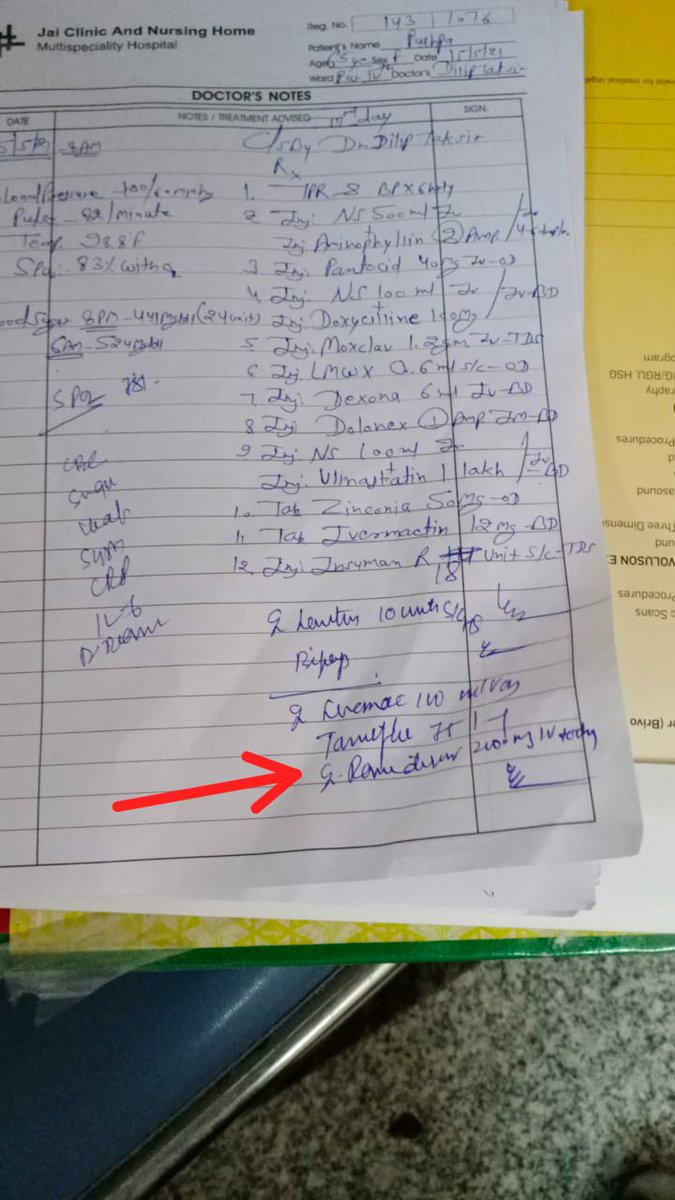 Jai Clinic And Nursing Home
Multispeciality Hospital
Reg. No. 143 / 1076
Patient's Name Pushpa
Age 65 ye Sex f Date 15/5/21
Ward Doctor's Dilip Taksir
DOCTOR'S NOTES
DATE NOTES / TREATMENT ADVISED SIGN.
day
15/5/21 8AM C/s By Dr. Dilip Taksir
Rx
Blood Pressure 100/60 mmhg 1. TPR & BP X 6hrly
Pulse - 82/minute 2 Inj. NS 500 ml Iv
Temp 98.8 f Inj Aminophyllin (2) Amp
SPO2: 83% with O2 3 Inj. Pantocid 40mg Iv-OD
4 Inj. NS 100 ml Iv / Iv-BD
Blood Sugar 8PM - 441 mg/dl (24 unit) + Inj. Doxycilline 100mg
6AM - 524 mg/dl 5 Inj. Moxclav 1.2gm Iv-TDS
6 Inj. LMWX 0.6 ml S/c-OD
SPO2 78%. 7 Inj. Dexona 6 ml Iv-BD
8 Inj Dolonex (1) Amp Im-BD
CBC 9 Inj NS 100 ml Iv
Sugar Inj. Ulinastatin 1 lakh / Iv BD
10. Tab Zinconia 50mg-OD
11. Tab Ivermactin 12 mg-BD
CRP 12. Inj. Insuman R 18 Unit S/c-TDS
IL-6
D'Dimer Lantus 10 units S/c
Bipap
110
Tamiflu 75 1-1
Remedesivir 200 mg IV
program
RIG/RGU, HSG
Procedures
Three Dimens
EVOLUSON E
Procedures
Scans
er (Brivo